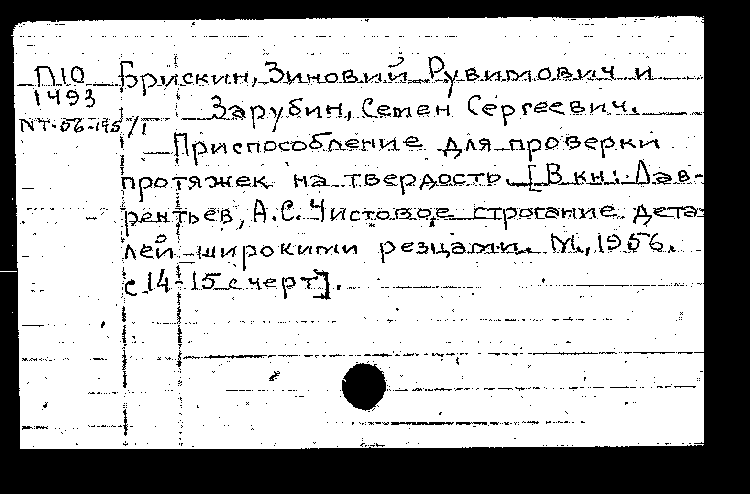 П10 Брискин, Зиновий Рувимович и
1493 Зарубин, Семен Сергеевич.
NT-56-195/1
Приспособление для проверки
протяжек на твердость. [В кн: Лав-
рентьев, А.С. Чистовое строгание дета-
лей широкими резцами. М., 1956.
с 14-15 с черт].